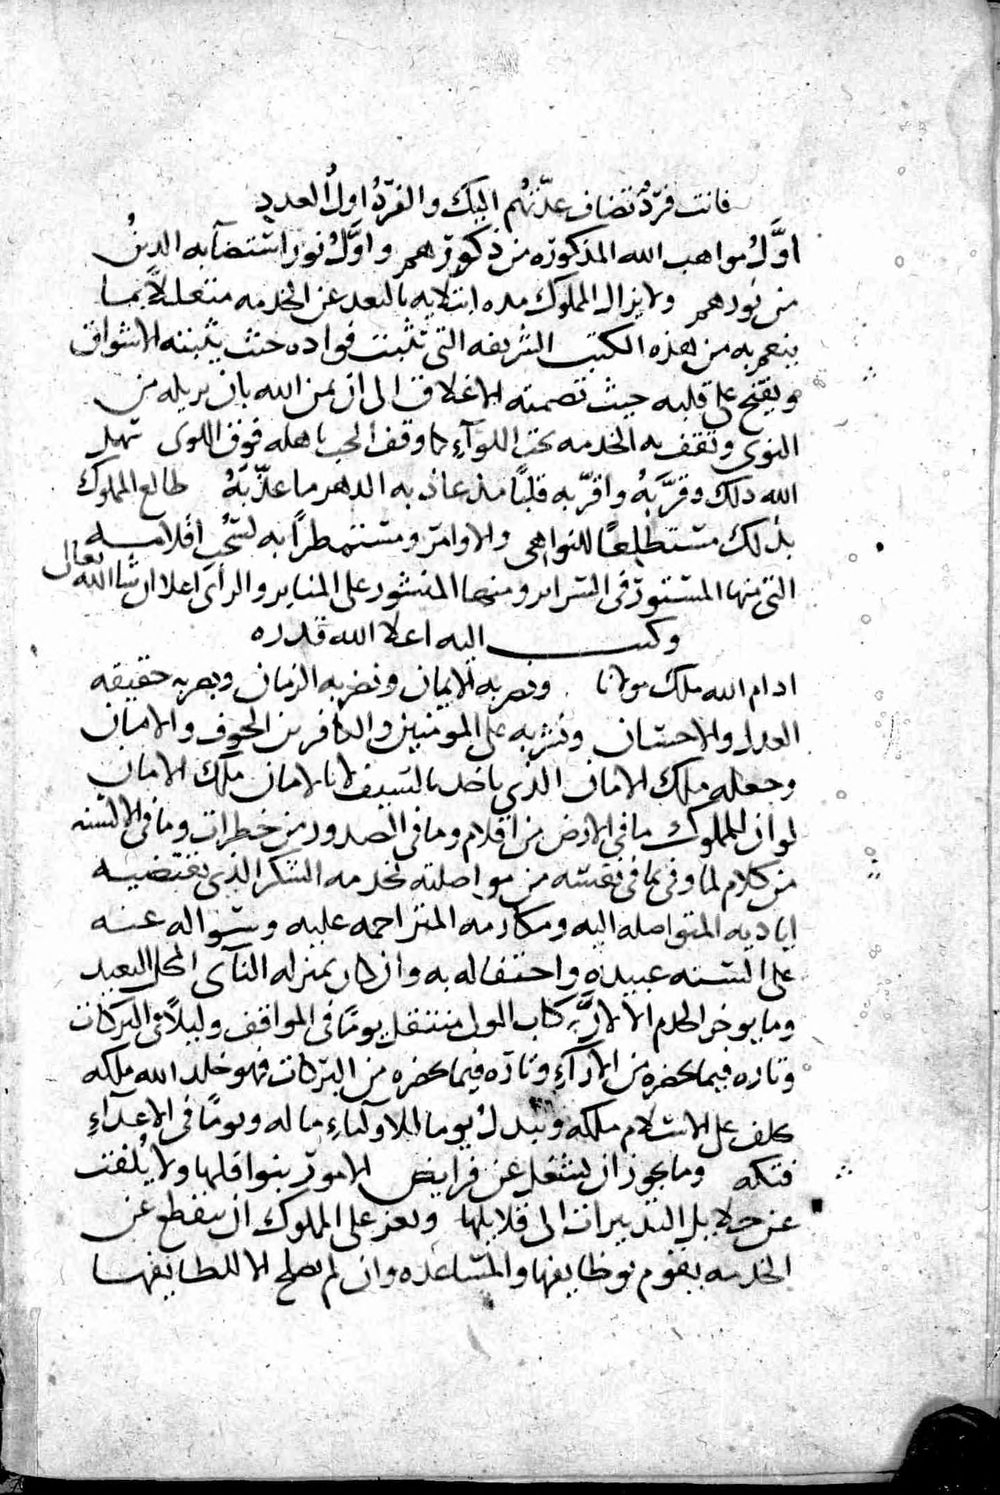 فانت فردٌ تضاف عدّتهُم اليك والفردُ اولُ العددِ
اوَّلُ مواهب الله المذكوره من ذكورهم واوَّلُ نور استضآ به الدينُ
من نورهم ولا يزال المملوك مده ابتلايه بالبعد عن الخدمه متعللاً بما
ينعم به من هذه الكتب الشريفه التي تثبت فواده حيث يثبته الاشواق
ويفتح على قلبه حيث تصمته الاغلاق الى ان يمن الله بان يريله من
النوى وتقف به الخدمه تحت اللوآءِ كما وقف الحب باهله فوق اللوى سهل
الله ذلك وقرَّبهُ واقرّ به قلبًا منذ عاذ به الدهر ما عذّبهُ طالع المملوك
بذلك مستطلعًا للنواهي والاوامر ومستمطرًا به لسُحُب اقلامه
التي منها المستور في السراير ومنها المنشور على المنابر والراى اعلا ان شا الله تعالى
وكتب اليه اعلا الله قدره
ادام الله ملك مولانا ونصر به الايمان ونضر به الزمان وبصر به حقيقه
العدل والاحسان ونشر به على المومنين والكافرين الخوف والامان
وجعله ملك الامان الذي ياخذ بالسيف لا بالامان ملك الامان
لو ان للمملوك ما في الارض من اقلام وما في الصدور من خطرات وما في الالسنه
من كلام لما وفى بما في نفسه من مواصلته لخدمه الشكر الذي تقتضيه
اياديه المتواصله اليه ومكارمه المتزاحمه عليه وسواله عنه
على السنه عبيده واحتفاله به وان كان بمنزله النآى المحل البعيد
وما يوخر الخدم الا لانَّ ركاب المولى منتقل يومًا في المواقف وليلاً في البركات
وتاره فيما يحضره من الارآءِ وتاره فيما يحضره من البركات فهو خلد الله ملكه
يخلف على الاسلام ملكه ويبدلُ يوما للاولياءِ ماله ويومًا في الاعدآءِ
فتكه وما يجوز ان يشتغل عن فرايض الامور بنوافلها ولا يُلفت
عن جلايل التدبيرات الى قلايلها ويعز على المملوك ان ينقطع عن
الخدمه بقوم بوظايفها والمساعده وان لم يصلح الا للطايفها